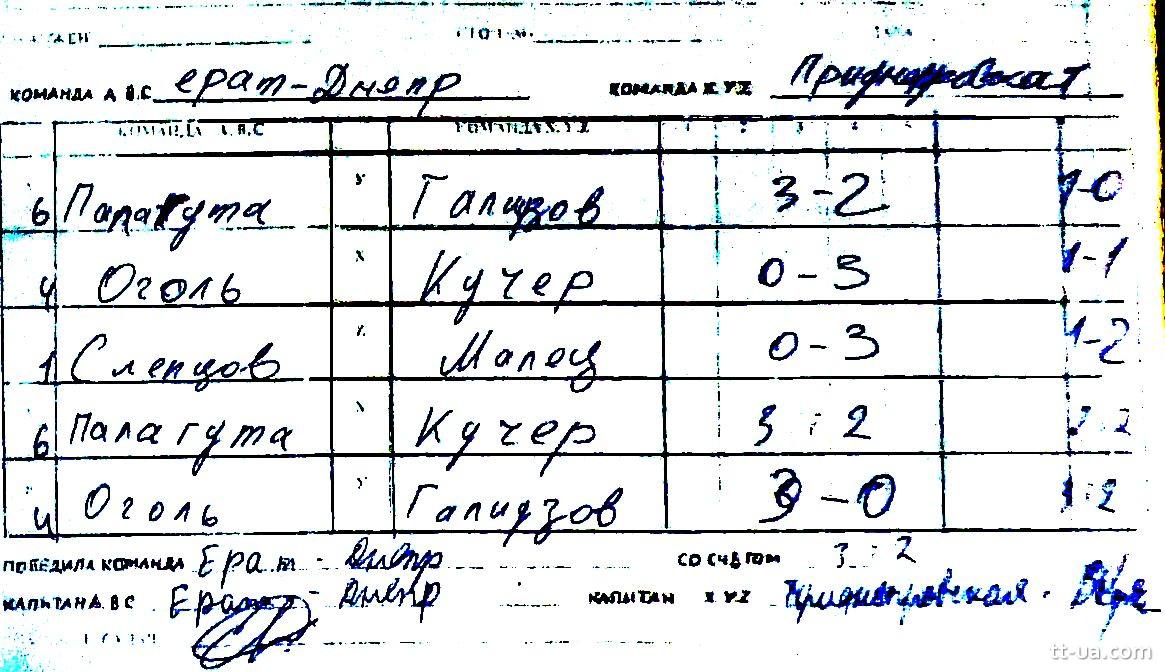 КОМАНДА А.В.С ерат-Днепр КОМАНДА X.Y.Z
КОМАНДА А.В.С КОМАНДА X.Y.Z 1 2 3 4 5
6 Палагута У Галидзов 3-2 1-0
4 Оголь X Кучер 0-3 1-1
1 Слепцов Z Малец 0-3 1-2
6 Палагута X Кучер 3:2 2:2
4 Оголь У Галидзов 3-0 3:2
ПОБЕДИЛА КОМАНДА Ерат-Днепр СО СЧЕТОМ 3:2
КАПИТАН А.В.С Ерат-Днепр КАПИТАН X.Y.Z
tt-ua.com